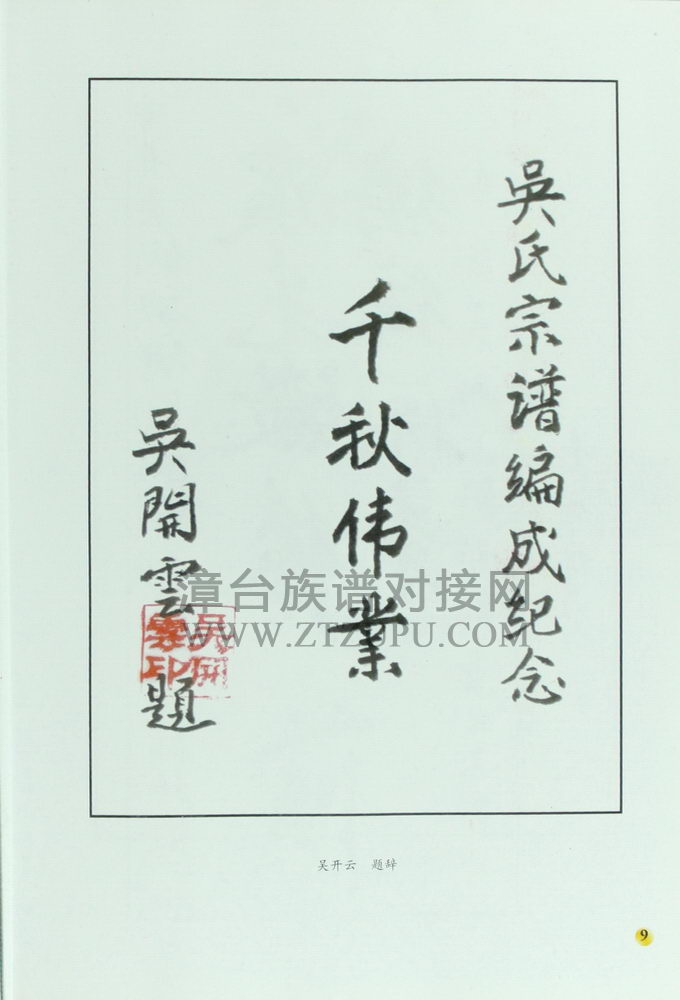 吳氏宗谱编成纪念
千秋伟業
吳開雲題
吳開雲印
漳台族谱对接网
WWW.ZTZUPU.COM
吴开云 题辞
9